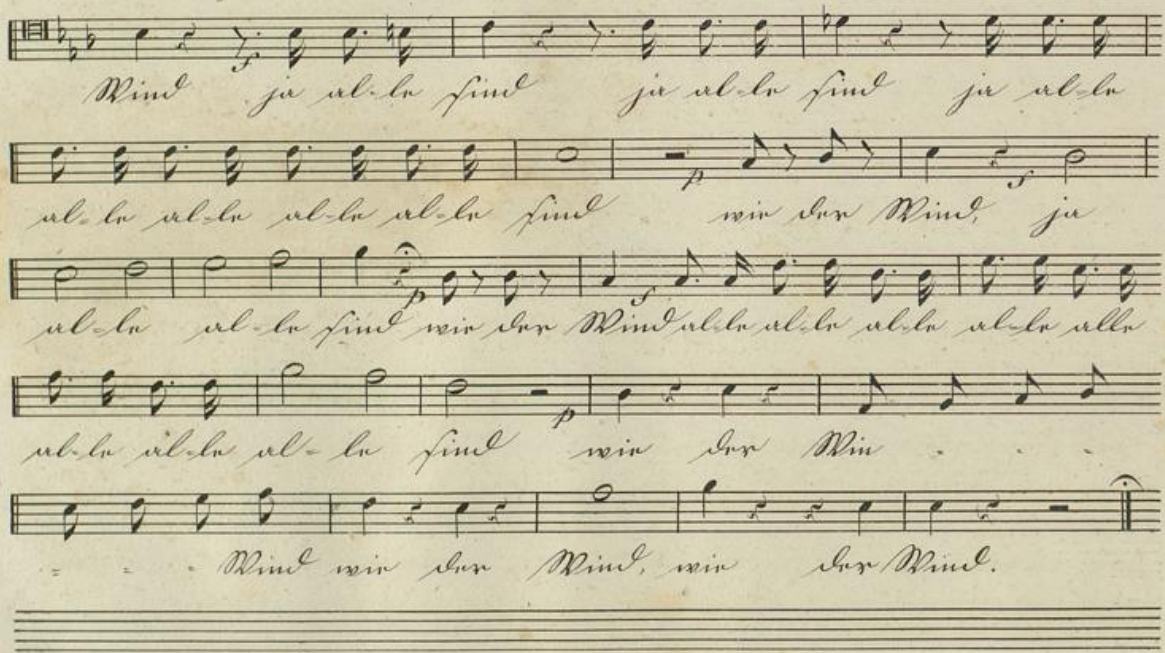 Wind ja al-le sind ja al-le sind ja al-le
al-le al-le al-le al-le sind wie der Wind, ja
al-le al-le sind wie der Wind al-le al-le al-le al-le alle
al-le al-le al-le sind wie der Win - - -
- - - Wind wie der Wind, wie der Wind.